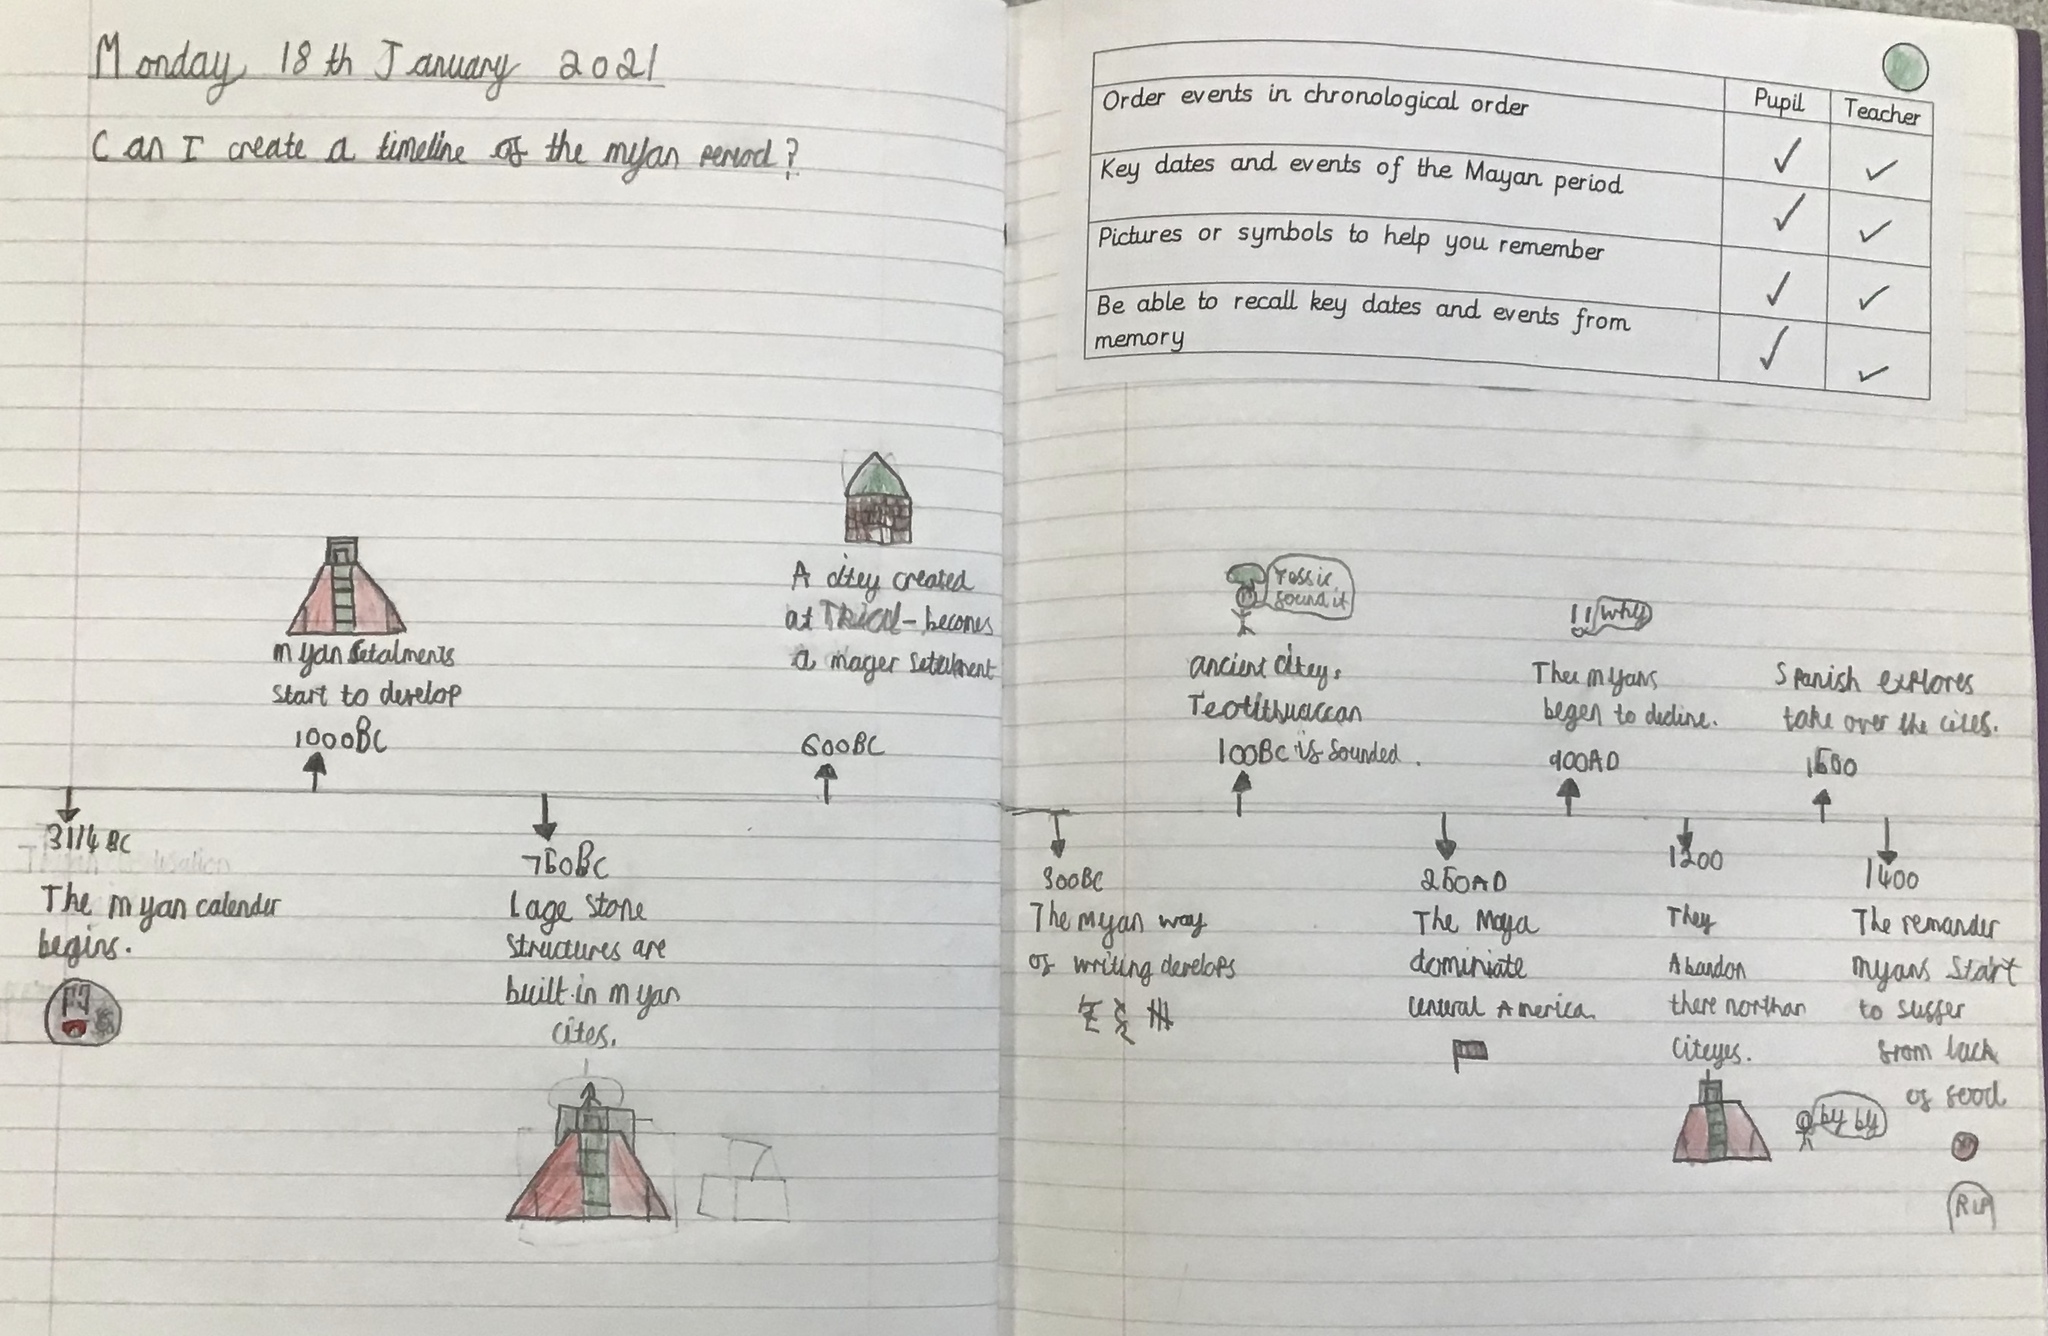 Monday 18th January 2021
Can I create a timeline of the myan period?
Pupil
Teacher
Order events in chronological order
Key dates and events of the Mayan period
Pictures or symbols to help you remember
Be able to recall key dates and events from
memory
myan setalments
start to develop
1000BC
A citey created
at - becomes
a mager
600BC
3114 BC
The myan calender
begins.
750BC
Lage stone
structures are
built in myan
cites.
found it
ancient citey,
100BC is founded.
why
The myans
began to decline.
900AD
Spanish explores
take over the cites.
300BC
The myan way
of writing develops
250AD
The Maya
dominiate
central America.
1200
They
Abandon
there northan
citeyes.
by by
1400
The remander
myans start
to suffer
from lack
of food
RIP